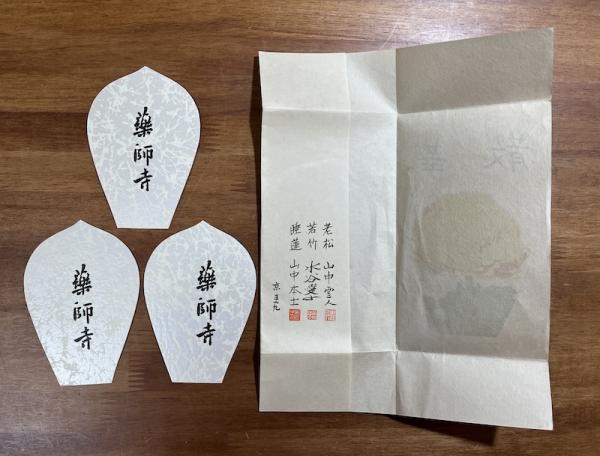 藥師寺
藥師寺
藥師寺
散華
老松 山中雪人
若竹 水谷愛子
睡蓮 山中本士